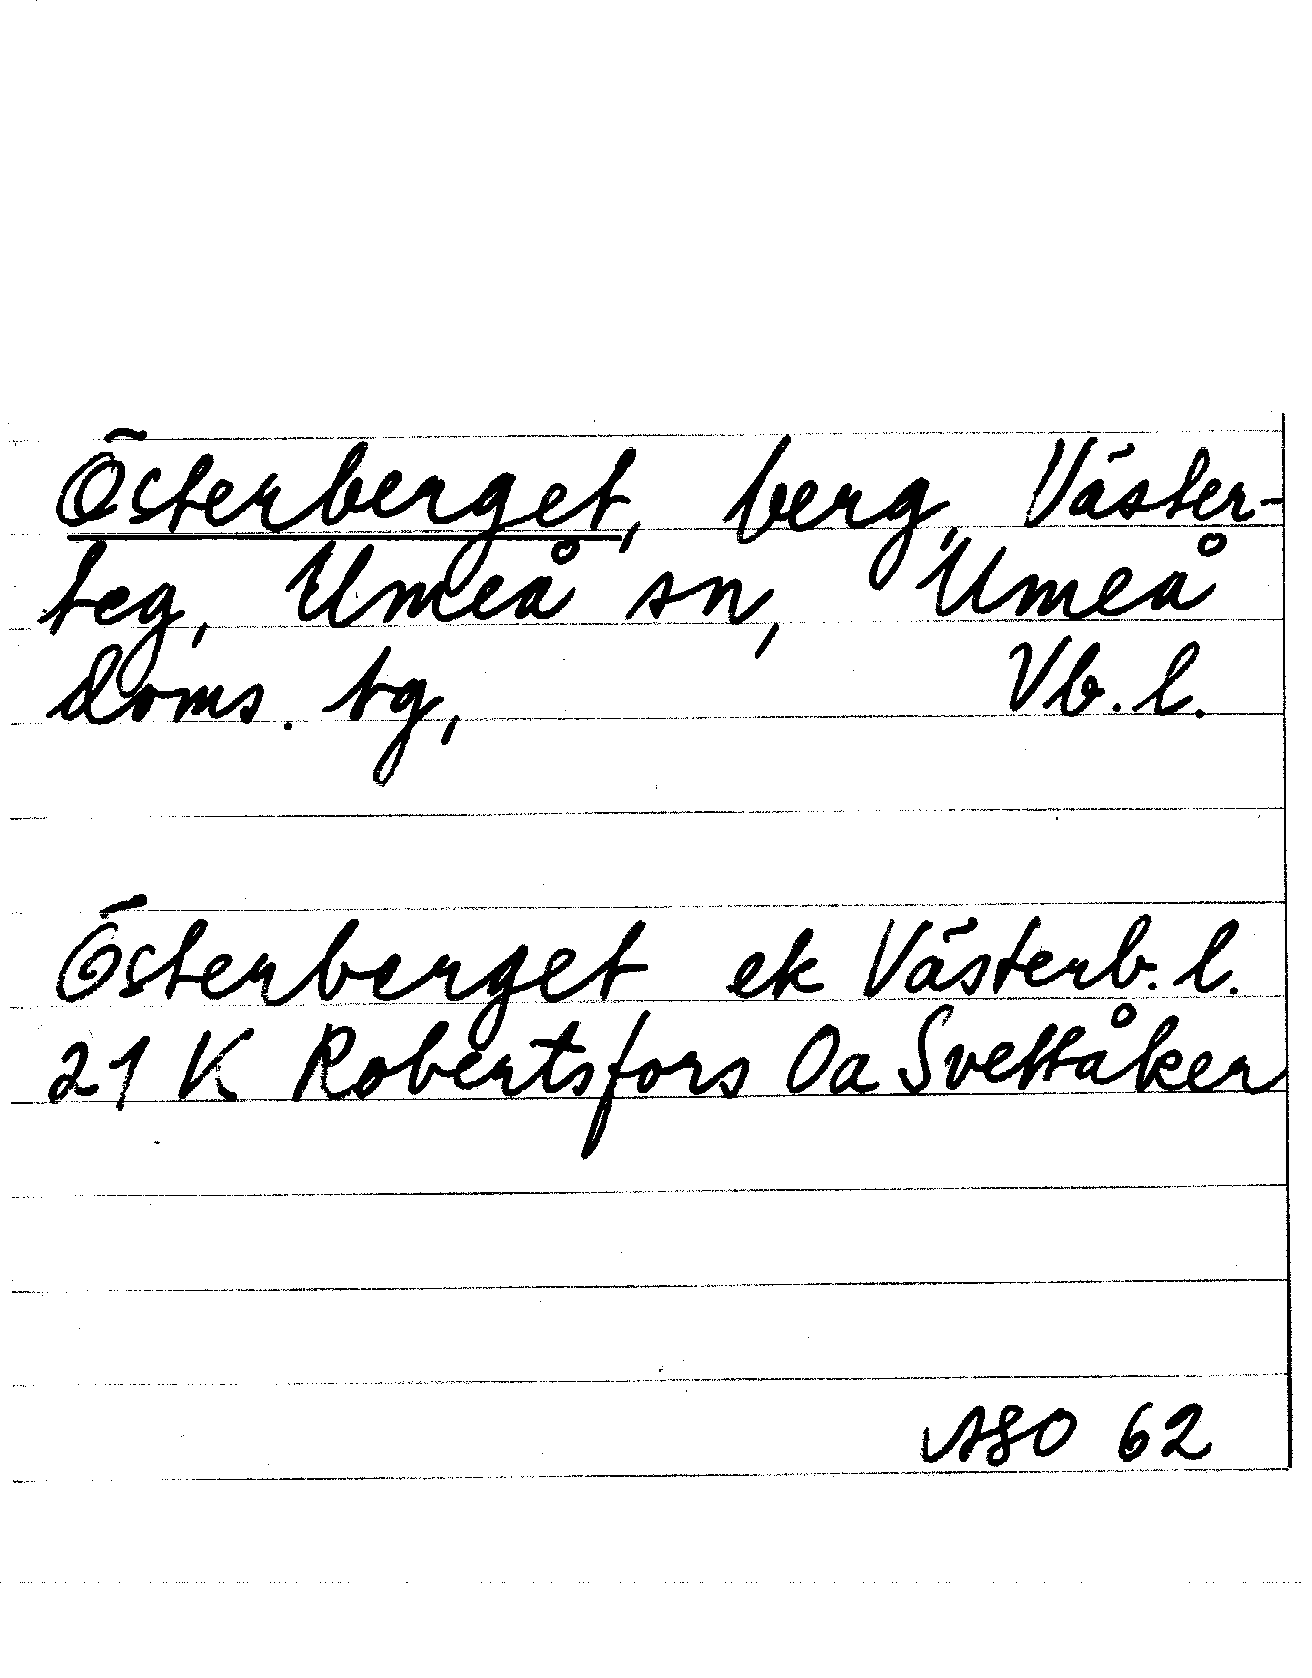 Österberget, berg, Väster-
teg, Umeå sn, Umeå
doms. tg, Vb. l.
Österberget ek Västerb. l.
21 K Robertsfors Oa Svettåker
ASO 62